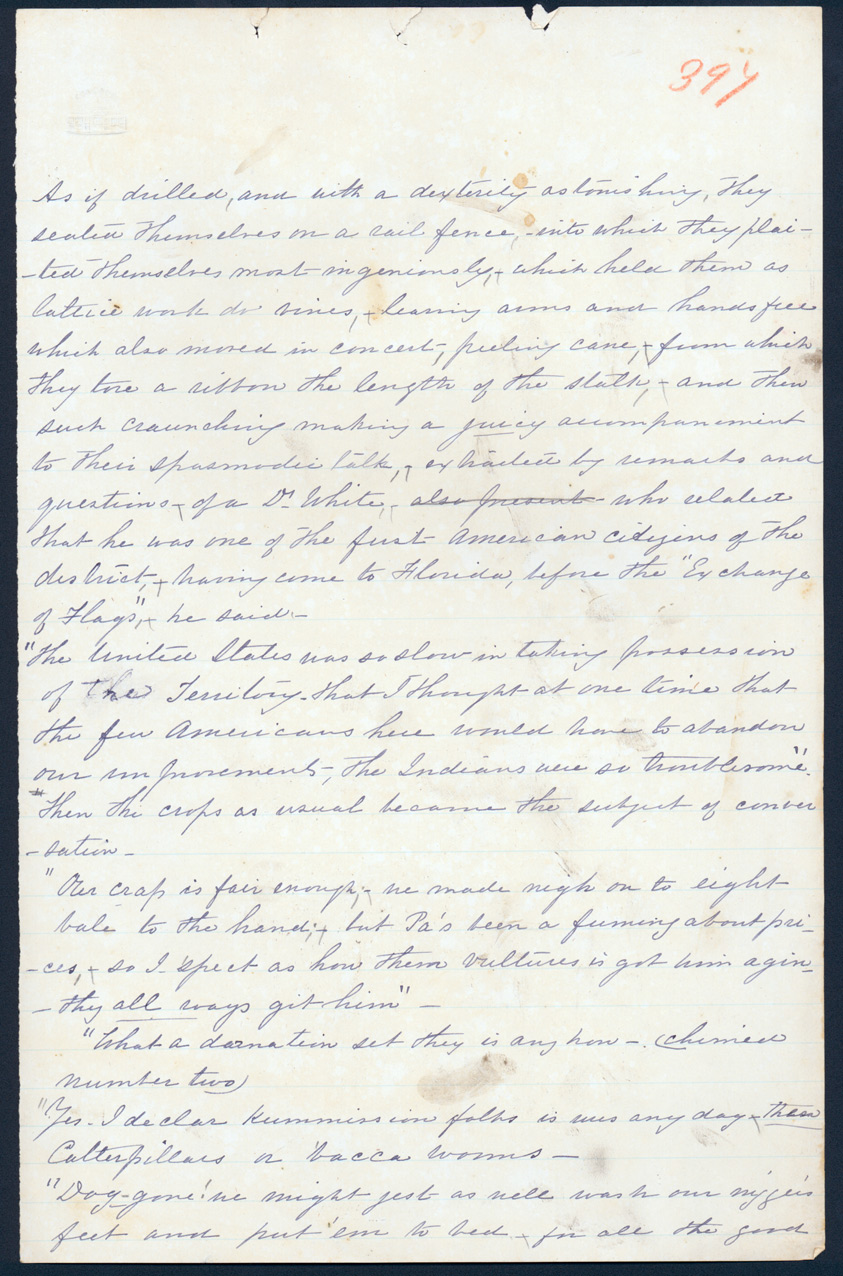 397
As if drilled, and with a dexterity astonishing, they
seated themselves on a rail fence, - into which they plai-
-ted themselves most ingeniously, - which held them as
lattice work do vines, - leaving arms and hands free
which also moved in concert, peeling cane, - from which
they tore a ribbon the length of the stalk, - and then
such craunching making a juicy accompaniment
to their spasmodic talk, - extracted by remarks and
questions - of a Dr White, - also present - who related
that he was one of the first American citizens of the
district, - having come to Florida, before the "Exchange
of Flags", - he said -
"The United States was so slow in taking possession
of the Territory - that I thought at one time that
the few Americans here would have to abandon
our improvements, the Indians were so troublesome".
Then the crops as usual became the subject of conver
-sation -
"Our crap is fair enough, - we made nigh on to eight
bale to the hand; - but Pa's been a fuming about pri-
-ces, - so I 'spect as how them vultures is got him agin -
- they all ways git him" -
"What a darnation set they is any how - (chimed
number two)
"Yes - I declar Kummission folks is wus any day - than
Catterpillars or 'bacca worms -
"Dog-gone! we might jest as well wash our niggers
feet and put 'em to bed - for all the good